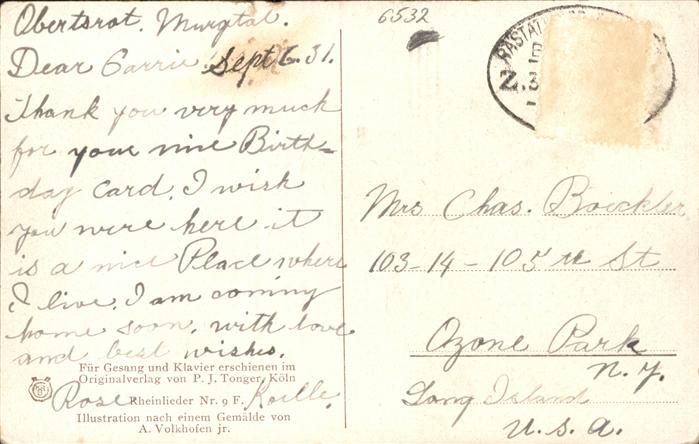 Obertsrot. Murgtal.
Dear Carrie Sept 6. 31.
Thank you very much
for your nice Birth=
day Card. I wish
you were here it
is a nice Place where
I live. I am coming
home soon, with love
and best wishes.
Für Gesang und Klavier erschienen im
Originalverlag von P. J. Tonger, Köln
Rose Koelle.
Rheinlieder Nr. 9 F.
Illustration nach einem Gemälde von
A. Volkhofen jr.
6532
RASTATT
Mrs Chas. Boeckler
103-14-105 th St
Ozone Park
N.Y.
Long Island
U.S.A.